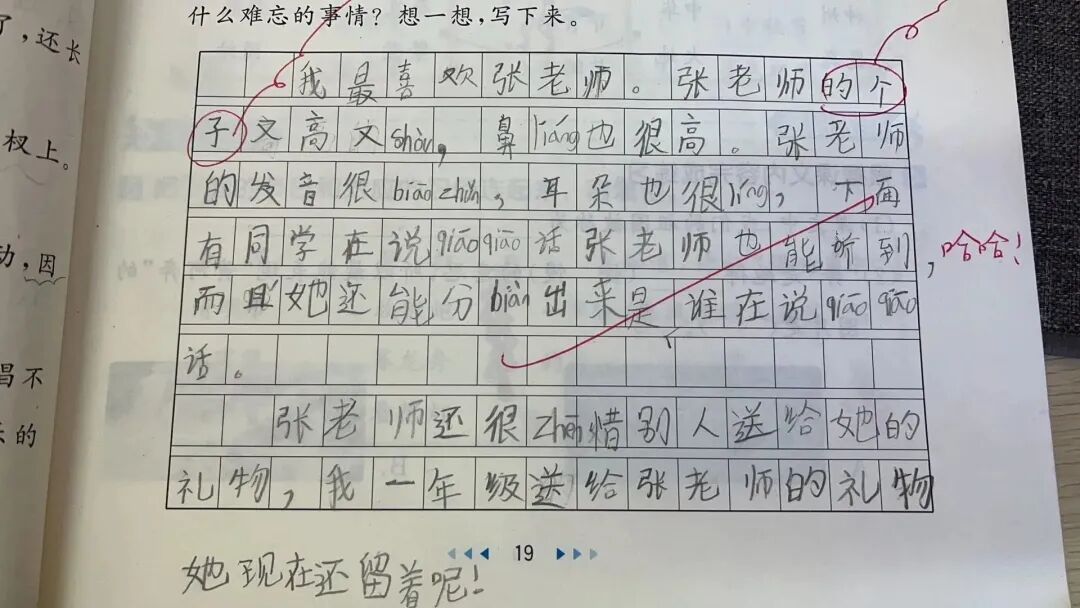 什么难忘的事情？想一想，写下来。
了，还长
杈上。
动，因
昌不
的
我最喜欢张老师。张老师的个
子文高文shòu，鼻liáng也很高。张老师
的发音很biāozhǔn，耳朵也很líng，下面
有同学在说qiāoqiāo话张老师也能听到，哈哈！
而且她还能分biàn出来是谁在说qiāoqiāo
话。
张老师还很zhēn惜别人送给她的
礼物，我一年级送给张老师的礼物
19
她现在还留着呢！